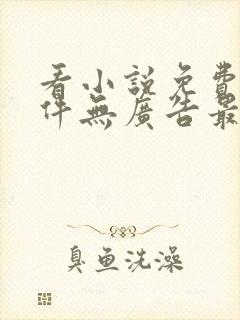 看小說免費
件無廣告最
臭魚洗澡